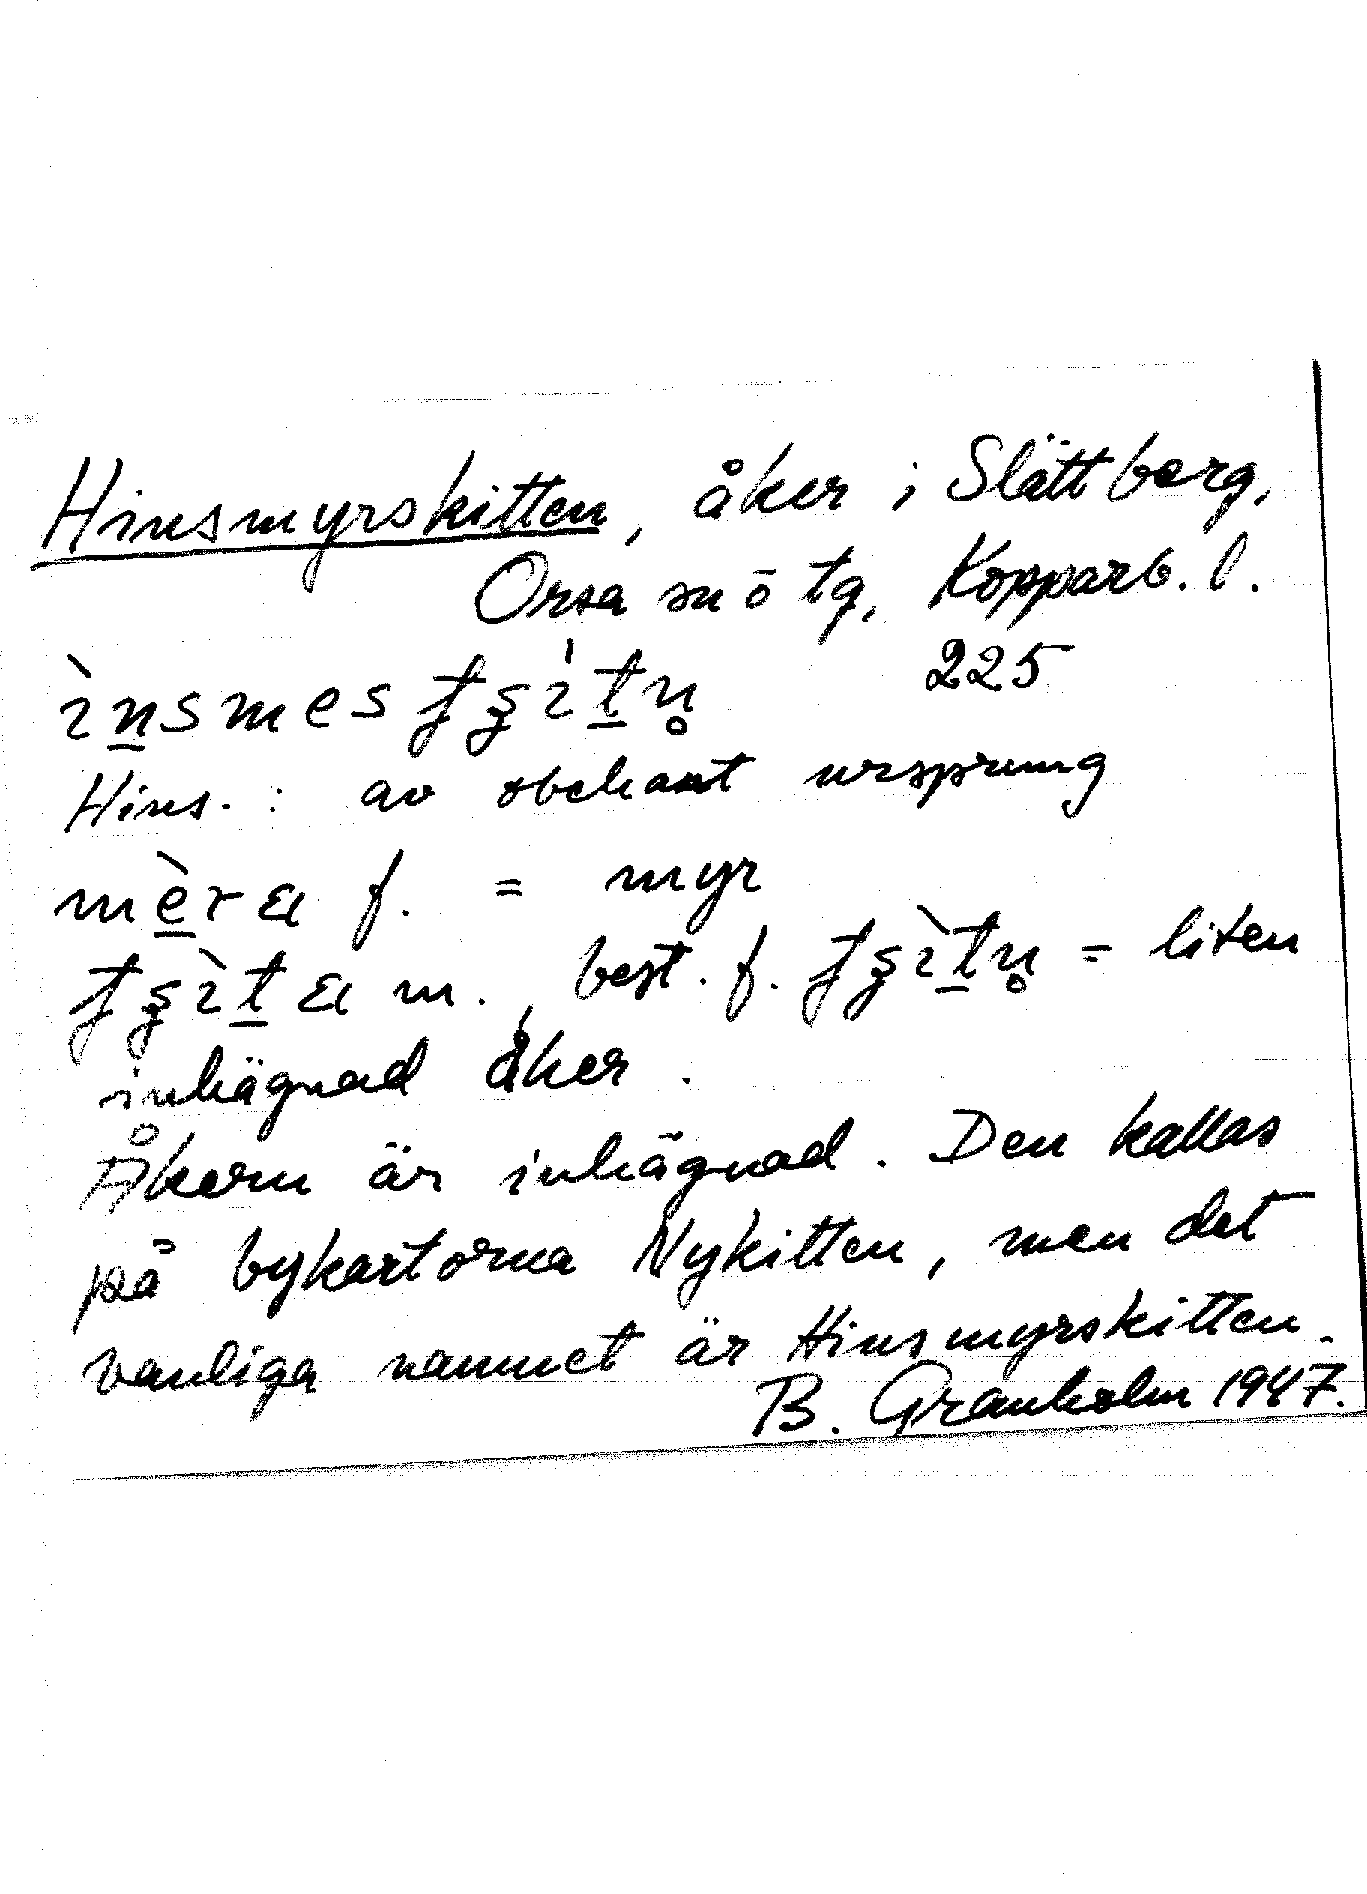 Hinsmyrskitten, åker i Slättberg,
Orsa sn o tg, Kopparb. l.
225
Hins- : av obekant ursprung
f. = myr
m., best. f. = liten
inhägnad åker.
Åkern är inhägnad. Den kallas
på bykartorna Nykitten, men det
vanliga namnet är Hinsmyrskitten.
B. Granholm 1947.